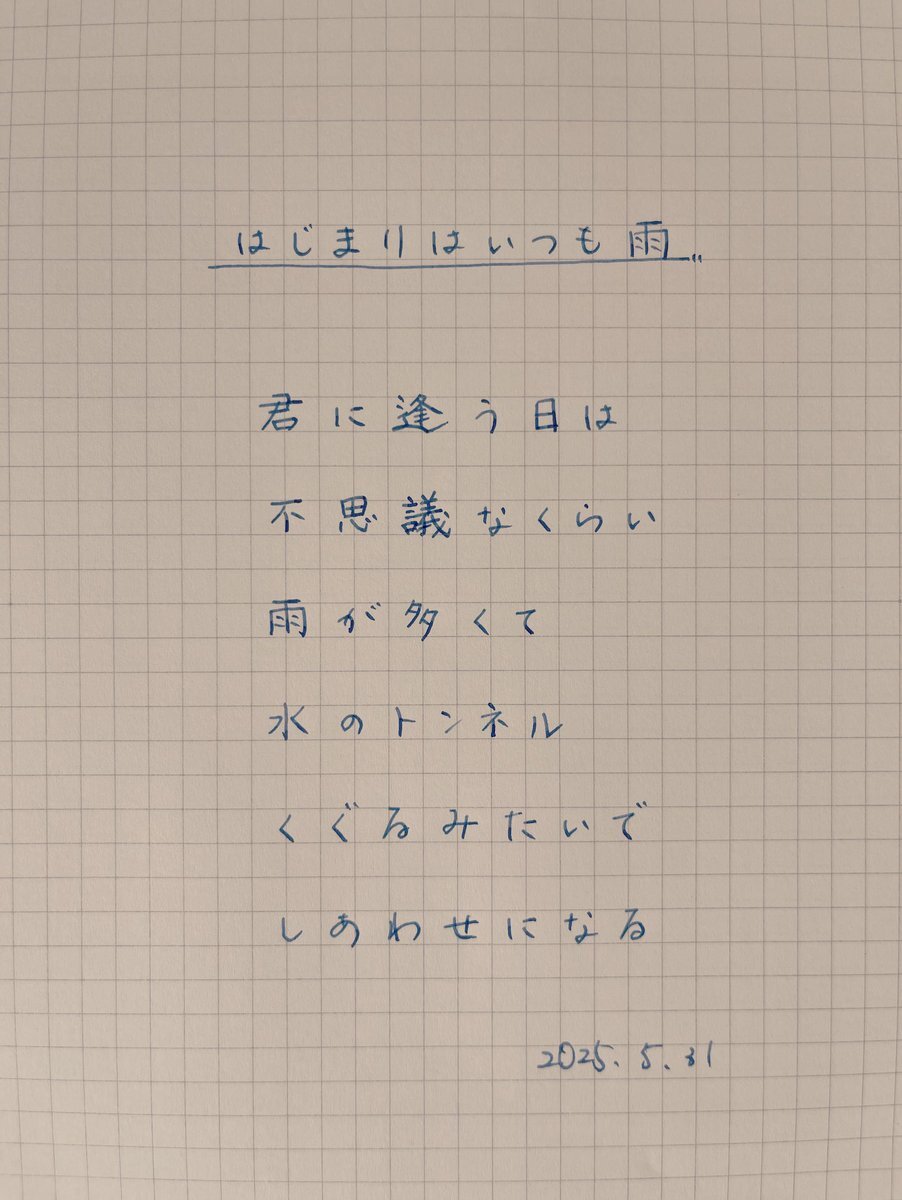 はじまりはいつも雨
君に逢う日は
不思議なくらい
雨が多くて
水のトンネル
くぐるみたいで
しあわせになる
2025.5.31